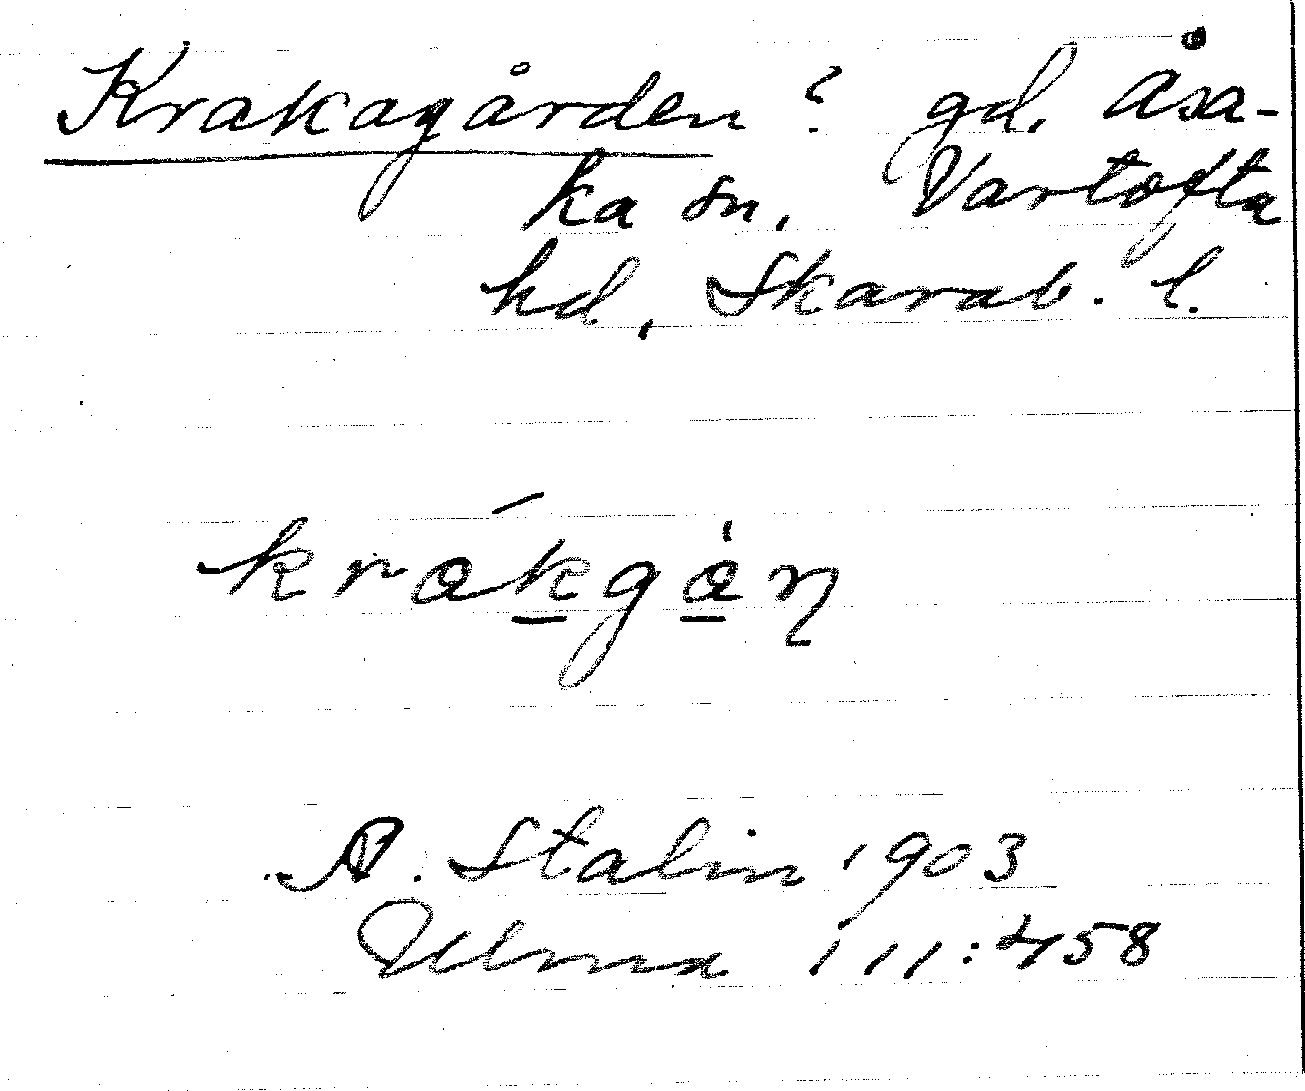 Krakagården? gd. Åsa-
ka sn. Vartofta
hd, Skarab. l.
krákgȧ̠ɳ
A. Stalin 1903
Ulma 111:458